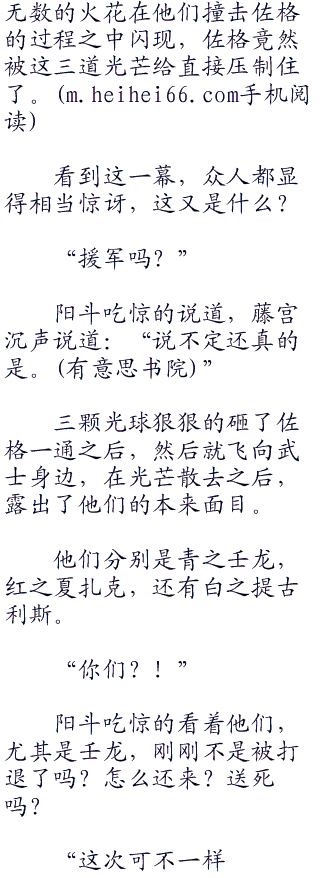 无数的火花在他们撞击佐格
的过程之中闪现，佐格竟然
被这三道光芒给直接压制住
了。(m.heihei66.com手机阅
读)
看到这一幕，众人都显
得相当惊讶，这又是什么？
“援军吗？”
阳斗吃惊的说道，藤宫
沉声说道：“说不定还真的
是。(有意思书院)”
三颗光球狠狠的砸了佐
格一通之后，然后就飞向武
士身边，在光芒散去之后，
露出了他们的本来面目。
他们分别是青之壬龙，
红之夏扎克，还有白之提古
利斯。
“你们？！”
阳斗吃惊的看着他们，
尤其是壬龙，刚刚不是被打
退了吗？怎么还来？送死
吗？
“这次可不一样